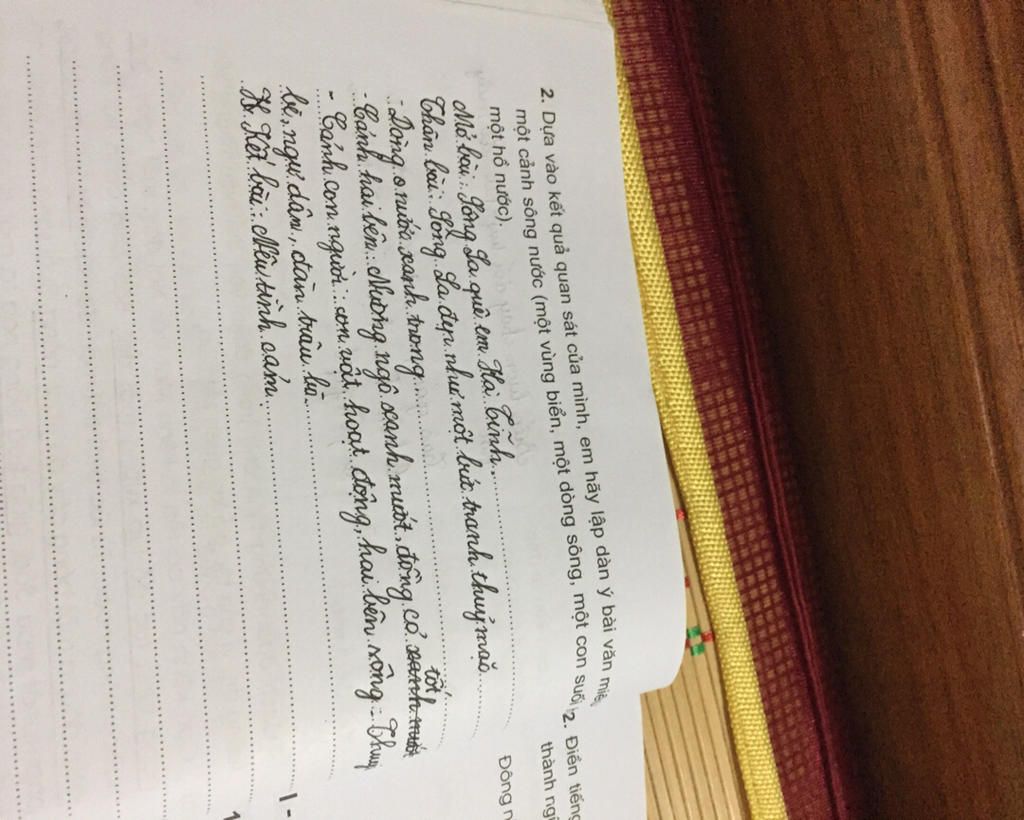 2. Dựa vào kết quả quan sát của mình, em hãy lập dàn ý bài văn miê
một cảnh sông nước (một vùng biển, một dòng sông, một con suối,
một hồ nước).
Mở bài: Sông La quê em Hà Tĩnh.
Thân bài: Sông La đẹp như một bức tranh thuỷ mặc
- Dòng nước xanh trong
- Cảnh hai bên. Nương ngô xanh mướt, đồng cỏ tốt
- Cảnh con người: con vật hoạt động, hai bên sông - Thuy
bè, ngư dân, đàn trâu bò
Kết bài: Nêu tình cảm.
2. Điền tiếng
thành ngữ
Đông n
I -
1